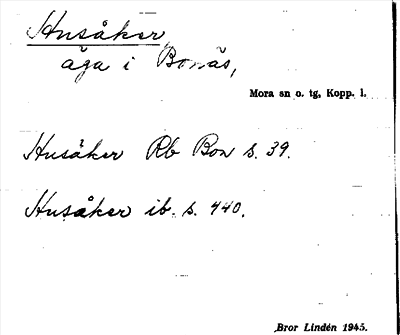 Husåker
äga i Bonäs,
Mora sn o. tg, Kopp. l.
Husåker Rb Bon s. 39.
Husåker ib. s. 440.
Bror Lindén 1945.